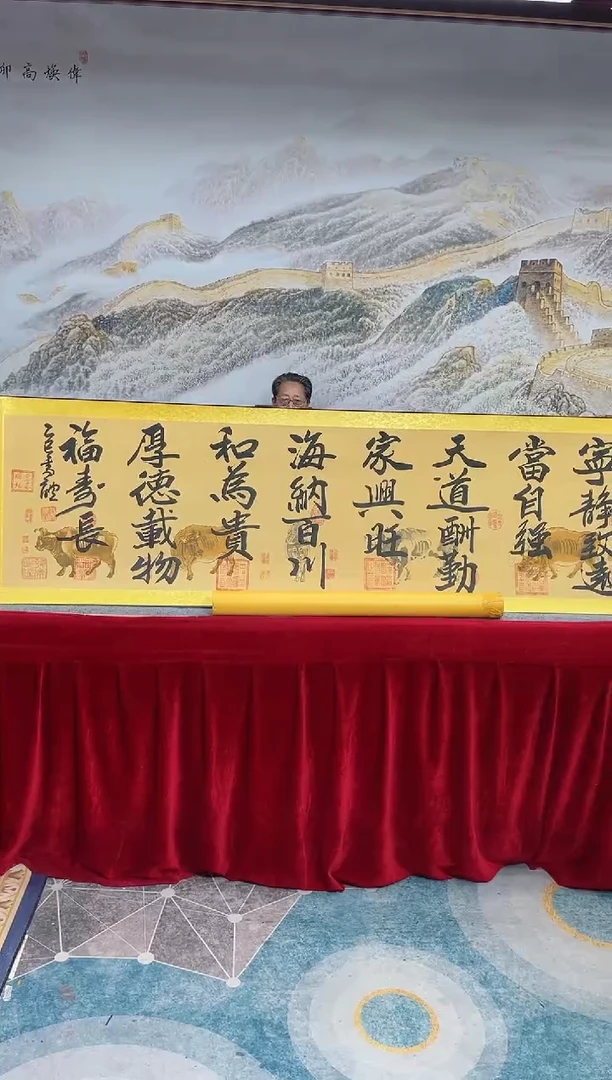 偉煥高
寧靜致遠
當自強
天道酬勤
家興旺
海納百川
和為貴
厚德載物
福壽長